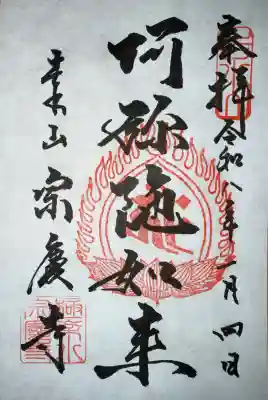 奉拝
令和八年一月四日
阿弥陀如来
宗慶寺